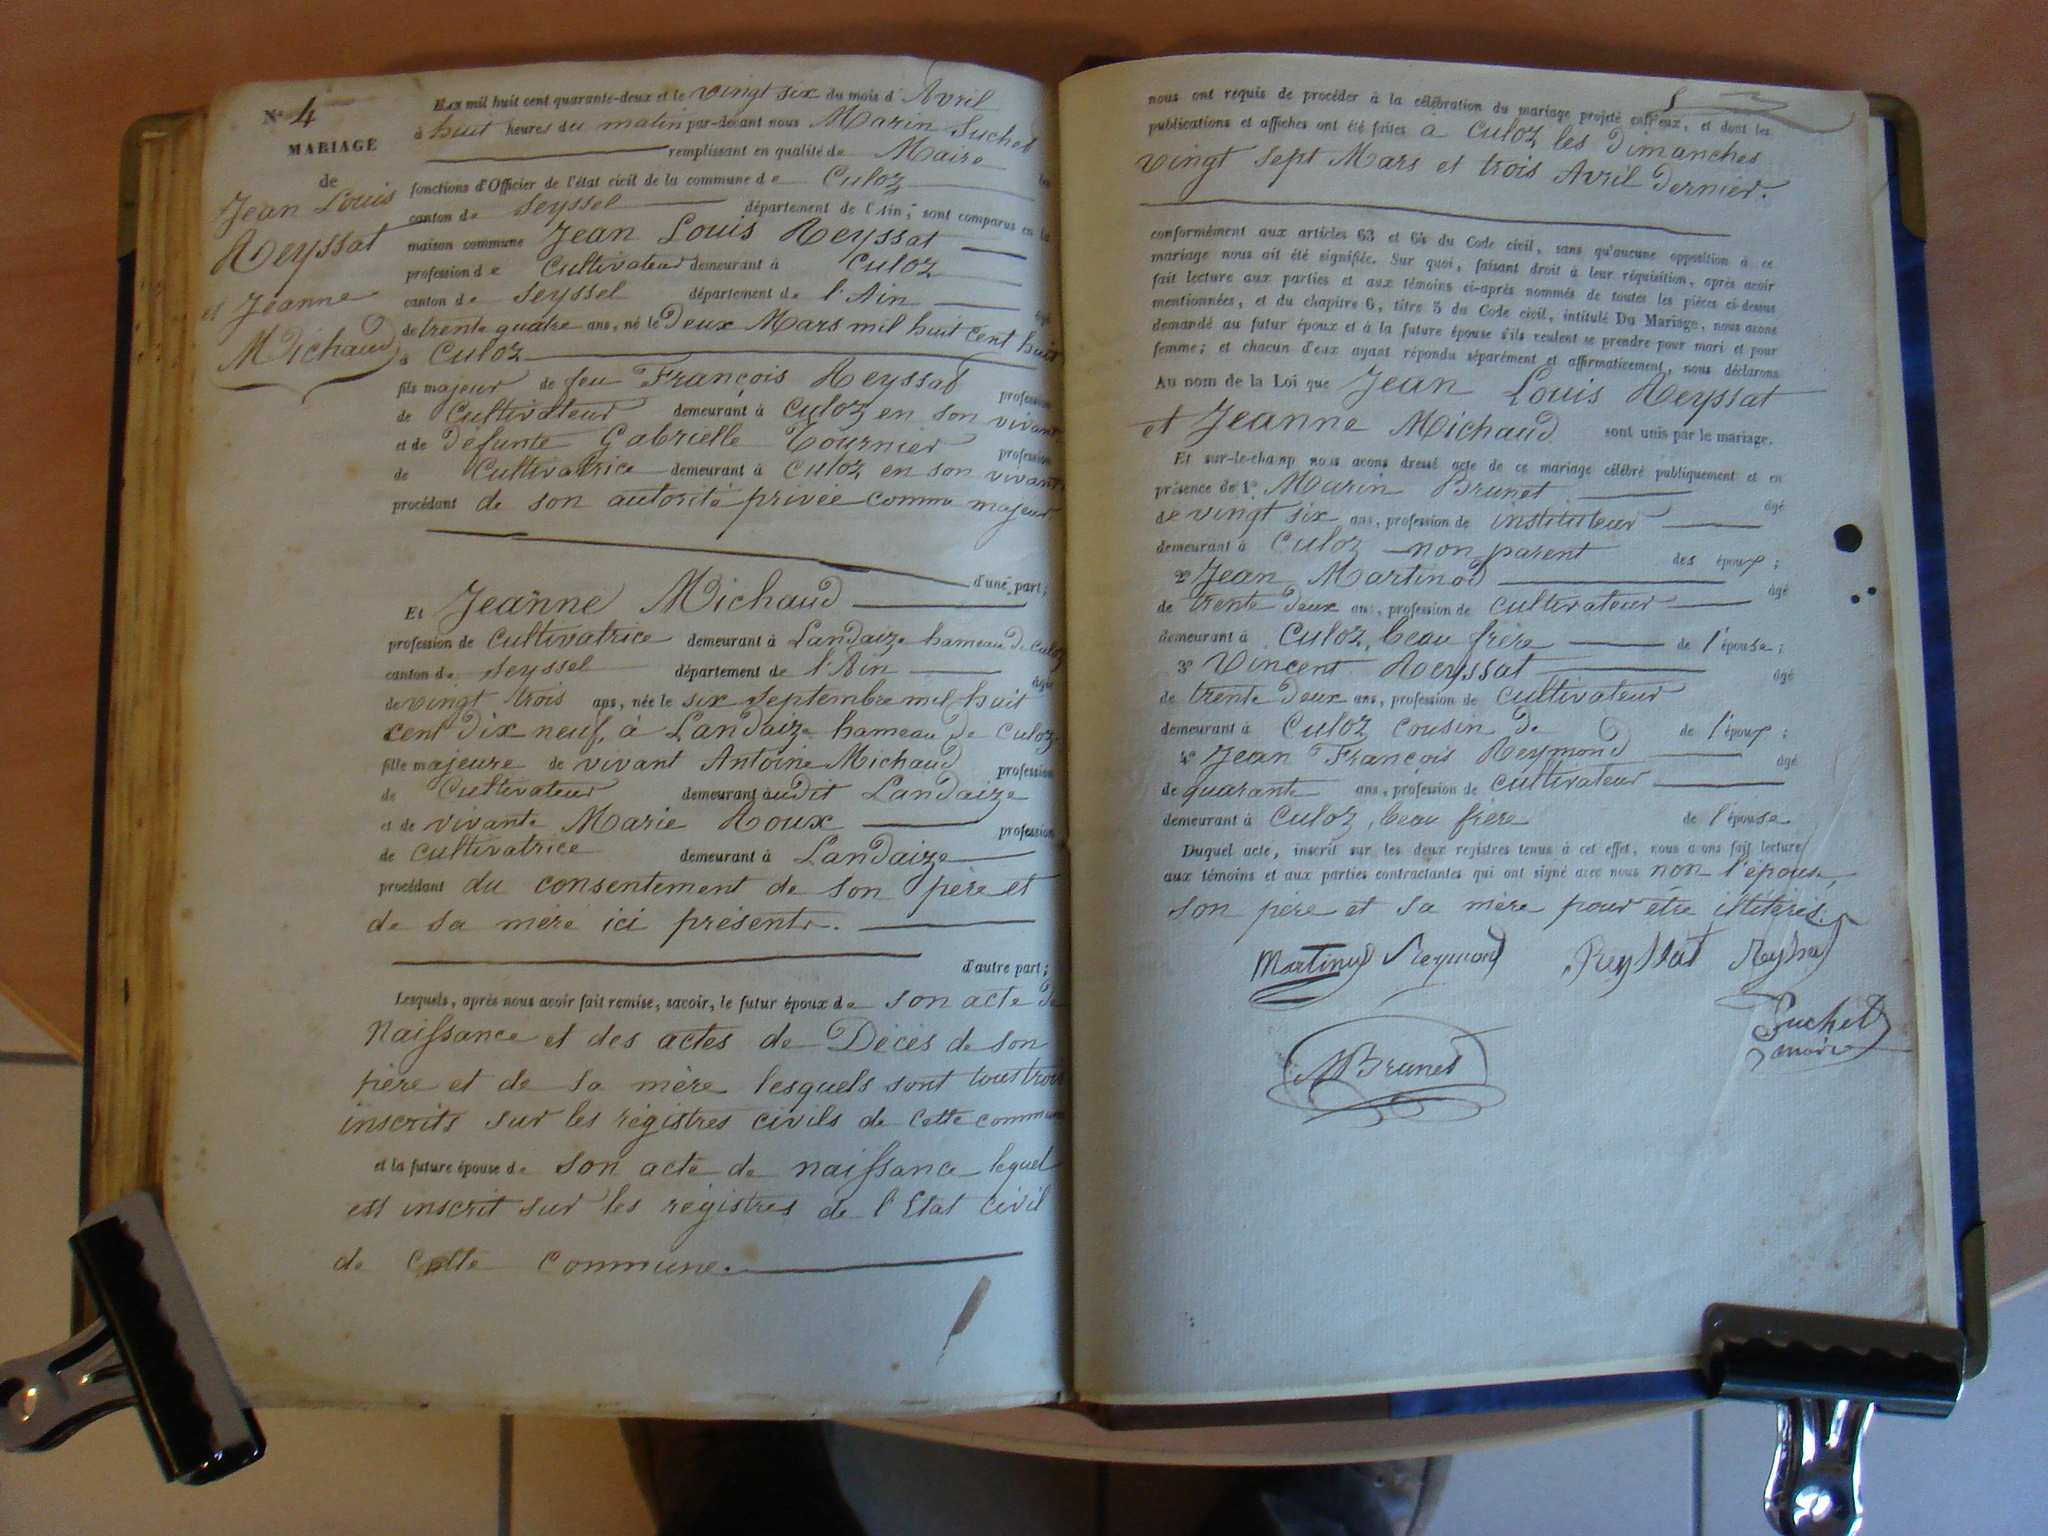 N° 4
MARIAGE
de
Jean Louis
Reyssat
et Jeanne
Michaud
L'AN mil huit cent quarante-deux et le vingt six du mois d'Avril
à huit heures du matin par-devant nous Marin Suchet
remplissant en qualité de Maire les
fonctions d'Officier de l'état civil de la commune de Culoz
canton de Seyssel département de l'Ain; sont comparus en la
maison commune Jean Louis Reyssat
profession de Cultivateur demeurant à Culoz
canton de Seyssel département de l'Ain
âgé
de trente quatre ans, né le Deux Mars mil huit cent huit
à Culoz
fils majeur de feu François Reyssat profession
de Cultivateur demeurant à Culoz en son vivant
et de Défunte Gabrielle Tournier profession
de Cultivatrice demeurant à Culoz en son vivant
procédant de son autorité privée comme majeur.
d'une part;
Et Jeanne Michaud
profession de Cultivatrice demeurant à Landaize hameau de Culoz
canton de Seyssel département de l'Ain
âgée
de vingt trois ans, née le six septembre mil huit
cent Dix neuf, à Landaize hameau de Culoz
fille majeure de vivant Antoine Michaud profession
de Cultivateur demeurant audit Landaize
et de vivante Marie Roux profession
de cultivatrice demeurant à Landaize
procédant du consentement de son père et
de sa mère ici présents.
d'autre part;
Lesquels, après nous avoir fait remise, savoir, le futur époux de son acte de
Naissance et des actes de Décès de son
père et de sa mère lesquels sont tous trois
inscrits sur les régistres civils de cette commune
et la future épouse de son acte de naissance lequel
est inscrit sur les régistres de l'Etat civil
de cette commune.
nous ont requis de procéder à la célébration du mariage projeté entr'eux, et dont les
publications et affiches ont été faites à Culoz les Dimanches
vingt sept Mars et trois Avril Dernier.
conformément aux articles 63 et 64 du Code civil, sans qu'aucune opposition à ce
mariage nous ait été signifiée. Sur quoi, faisant droit à leur réquisition, après avoir
fait lecture aux parties et aux témoins ci-après nommés de toutes les pièces ci-dessus
mentionnées, et du chapitre 6, titre 5 du Code civil, intitulé Du Mariage, nous avons
demandé au futur époux et à la future épouse s'ils veulent se prendre pour mari et pour
femme; et chacun d'eux ayant répondu séparément et affirmativement, nous déclarons
Au nom de la Loi que Jean Louis Reyssat
et Jeanne Michaud sont unis par le mariage.
Et sur-le-champ nous avons dressé acte de ce mariage célébré publiquement et en
présence de 1° Marin Brunet
âgé
de vingt six ans, profession de instituteur
demeurant à Culoz non parent des époux;
2° Jean Martinod
âgé
de trente Deux ans, profession de cultivateur
demeurant à Culoz, beau frère de l'épouse;
3° Vincent Reyssat
âgé
de trente Deux ans, profession de cultivateur
demeurant à Culoz cousin de de l'époux;
4° Jean François Reymond
âgé
de quarante ans, profession de cultivateur
demeurant à Culoz, beau frère de l'épouse
Duquel acte, inscrit sur les deux registres tenus à cet effet, nous avons fait lecture
aux témoins et aux parties contractantes qui ont signé avec nous non l'épouse,
son père et sa mère pour être illitérés.
Martinod Reymond Reyssat
Suchet
maire
MBrunet